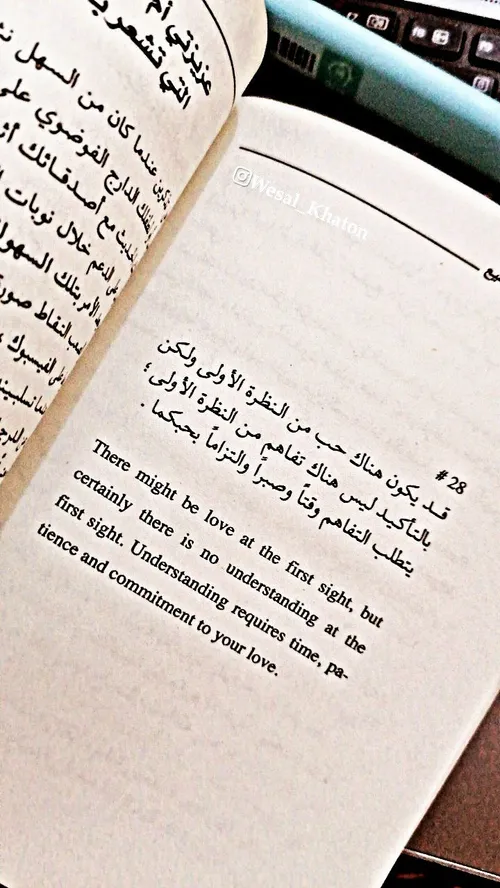 عزيزتي أم
التي تشعر
عندما كان من السهل
الدارج الفوضوي على
مع أصدقائك
خلال نوبات
بتلك السهولة
التقاط صورة
الفيسبوك
Wesal_Khaton
#28
قد يكون هناك حب من النظرة الأولى ولكن
بالتأكيد ليس هناك تفاهم من النظرة الأولى ؛
يتطلب التفاهم وقتاً وصبراً والتزاماً بحبكما .
There might be love at the first sight, but
certainly there is no understanding at the
first sight. Understanding requires time, pa-
tience and commitment to your love.